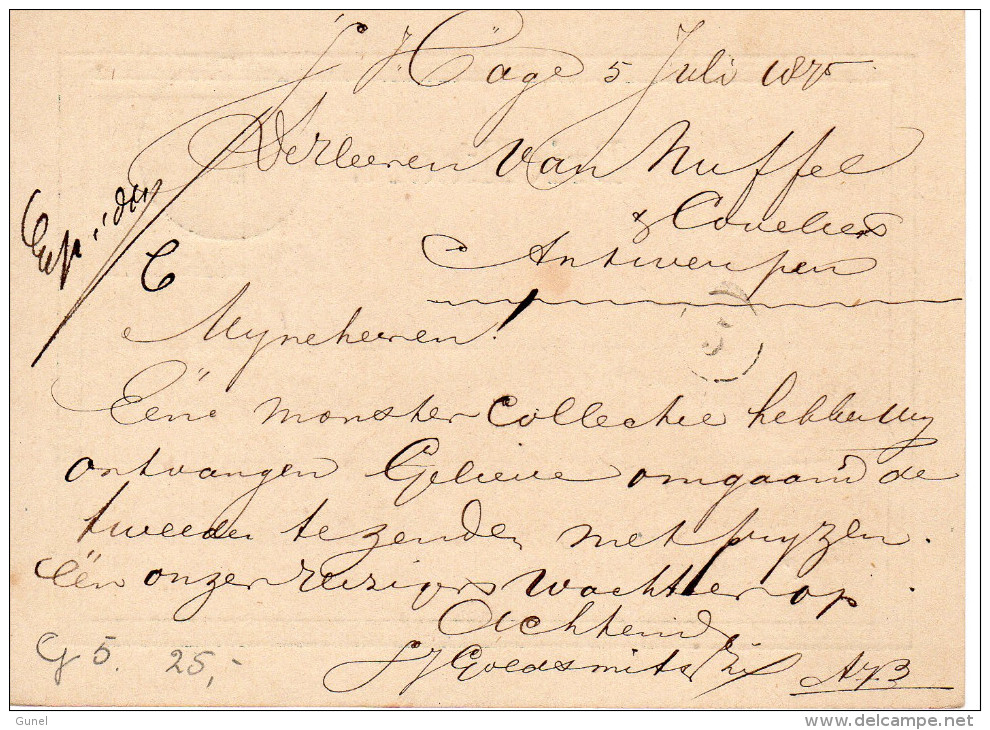 s' Hage 5 Juli 1875
DeHeeren Van Nuffel
& Coveliers
Antwerpen
Mijneheeren!
Eéne monster Collectie hebben wij
ontvangen Gelieve omgaand de
tweede te zenden met pryzen.
Eén onzer reizigers wacht er op
Achtend
Goedsmits
Cy 5. 25,-
Gunel
delcampe.net